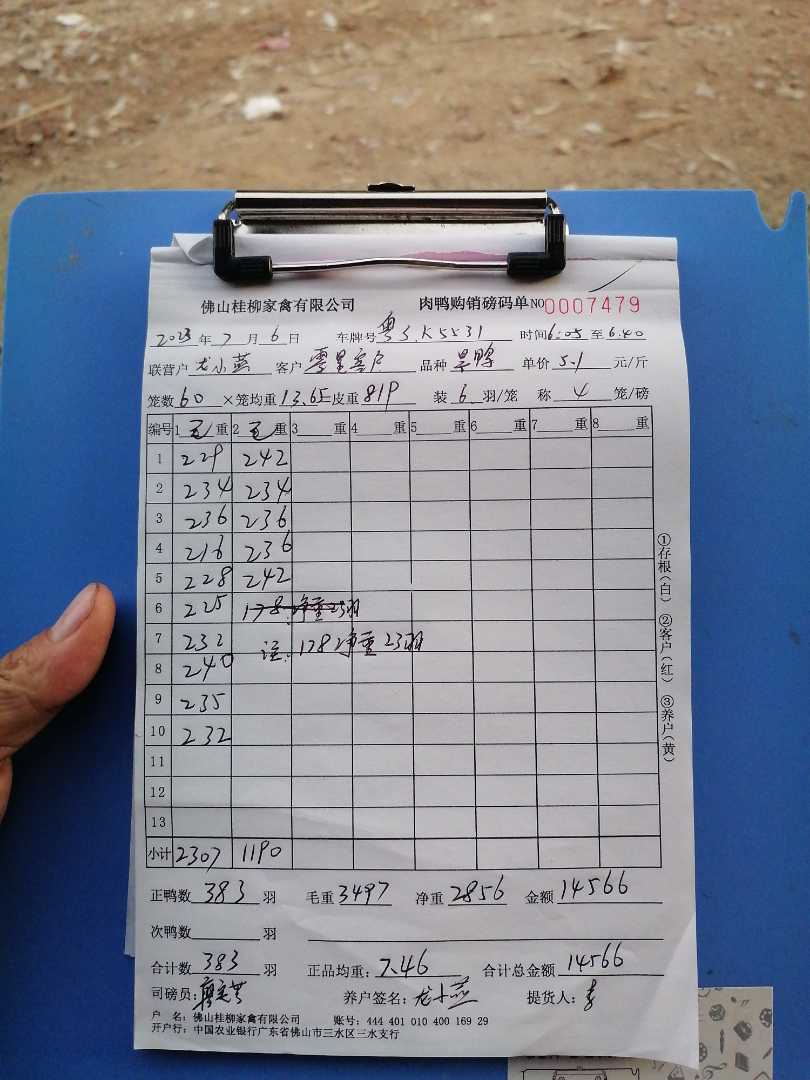 佛山桂柳家禽有限公司 肉鸭购销磅码单 NO 0007479
2023 年 7 月 6 日 车牌号 粤S.K5531 时间 6:05 至 6:40
联营户 龙小燕 客户 零星客户 品种 旱鸭 单价 5.1 元/斤
笼数 60 ×笼均重 13.65 =皮重 819 装 6 羽/笼 称 4 笼/磅
编号 1 毛 重 2 毛 重 3 重 4 重 5 重 6 重 7 重 8 重
1 229 242
2 234 234
3 236 236
4 216 236
5 228 242
6 225 178:净重23羽
7 232 注:178净重23羽
8 240
9 235
10 232
11
12
13
小计 2307 1190
①存根(白) ②客户(红) ③养户(黄)
正鸭数 383 羽 毛重 3497 净重 2856 金额 14566
次鸭数 羽
合计数 383 羽 正品均重: 7.46 合计总金额 14566
司磅员: 养户签名: 龙小燕 提货人:
户 名: 佛山桂柳家禽有限公司 账号: 444 401 010 400 169 29
开户行: 中国农业银行广东省佛山市三水区三水支行